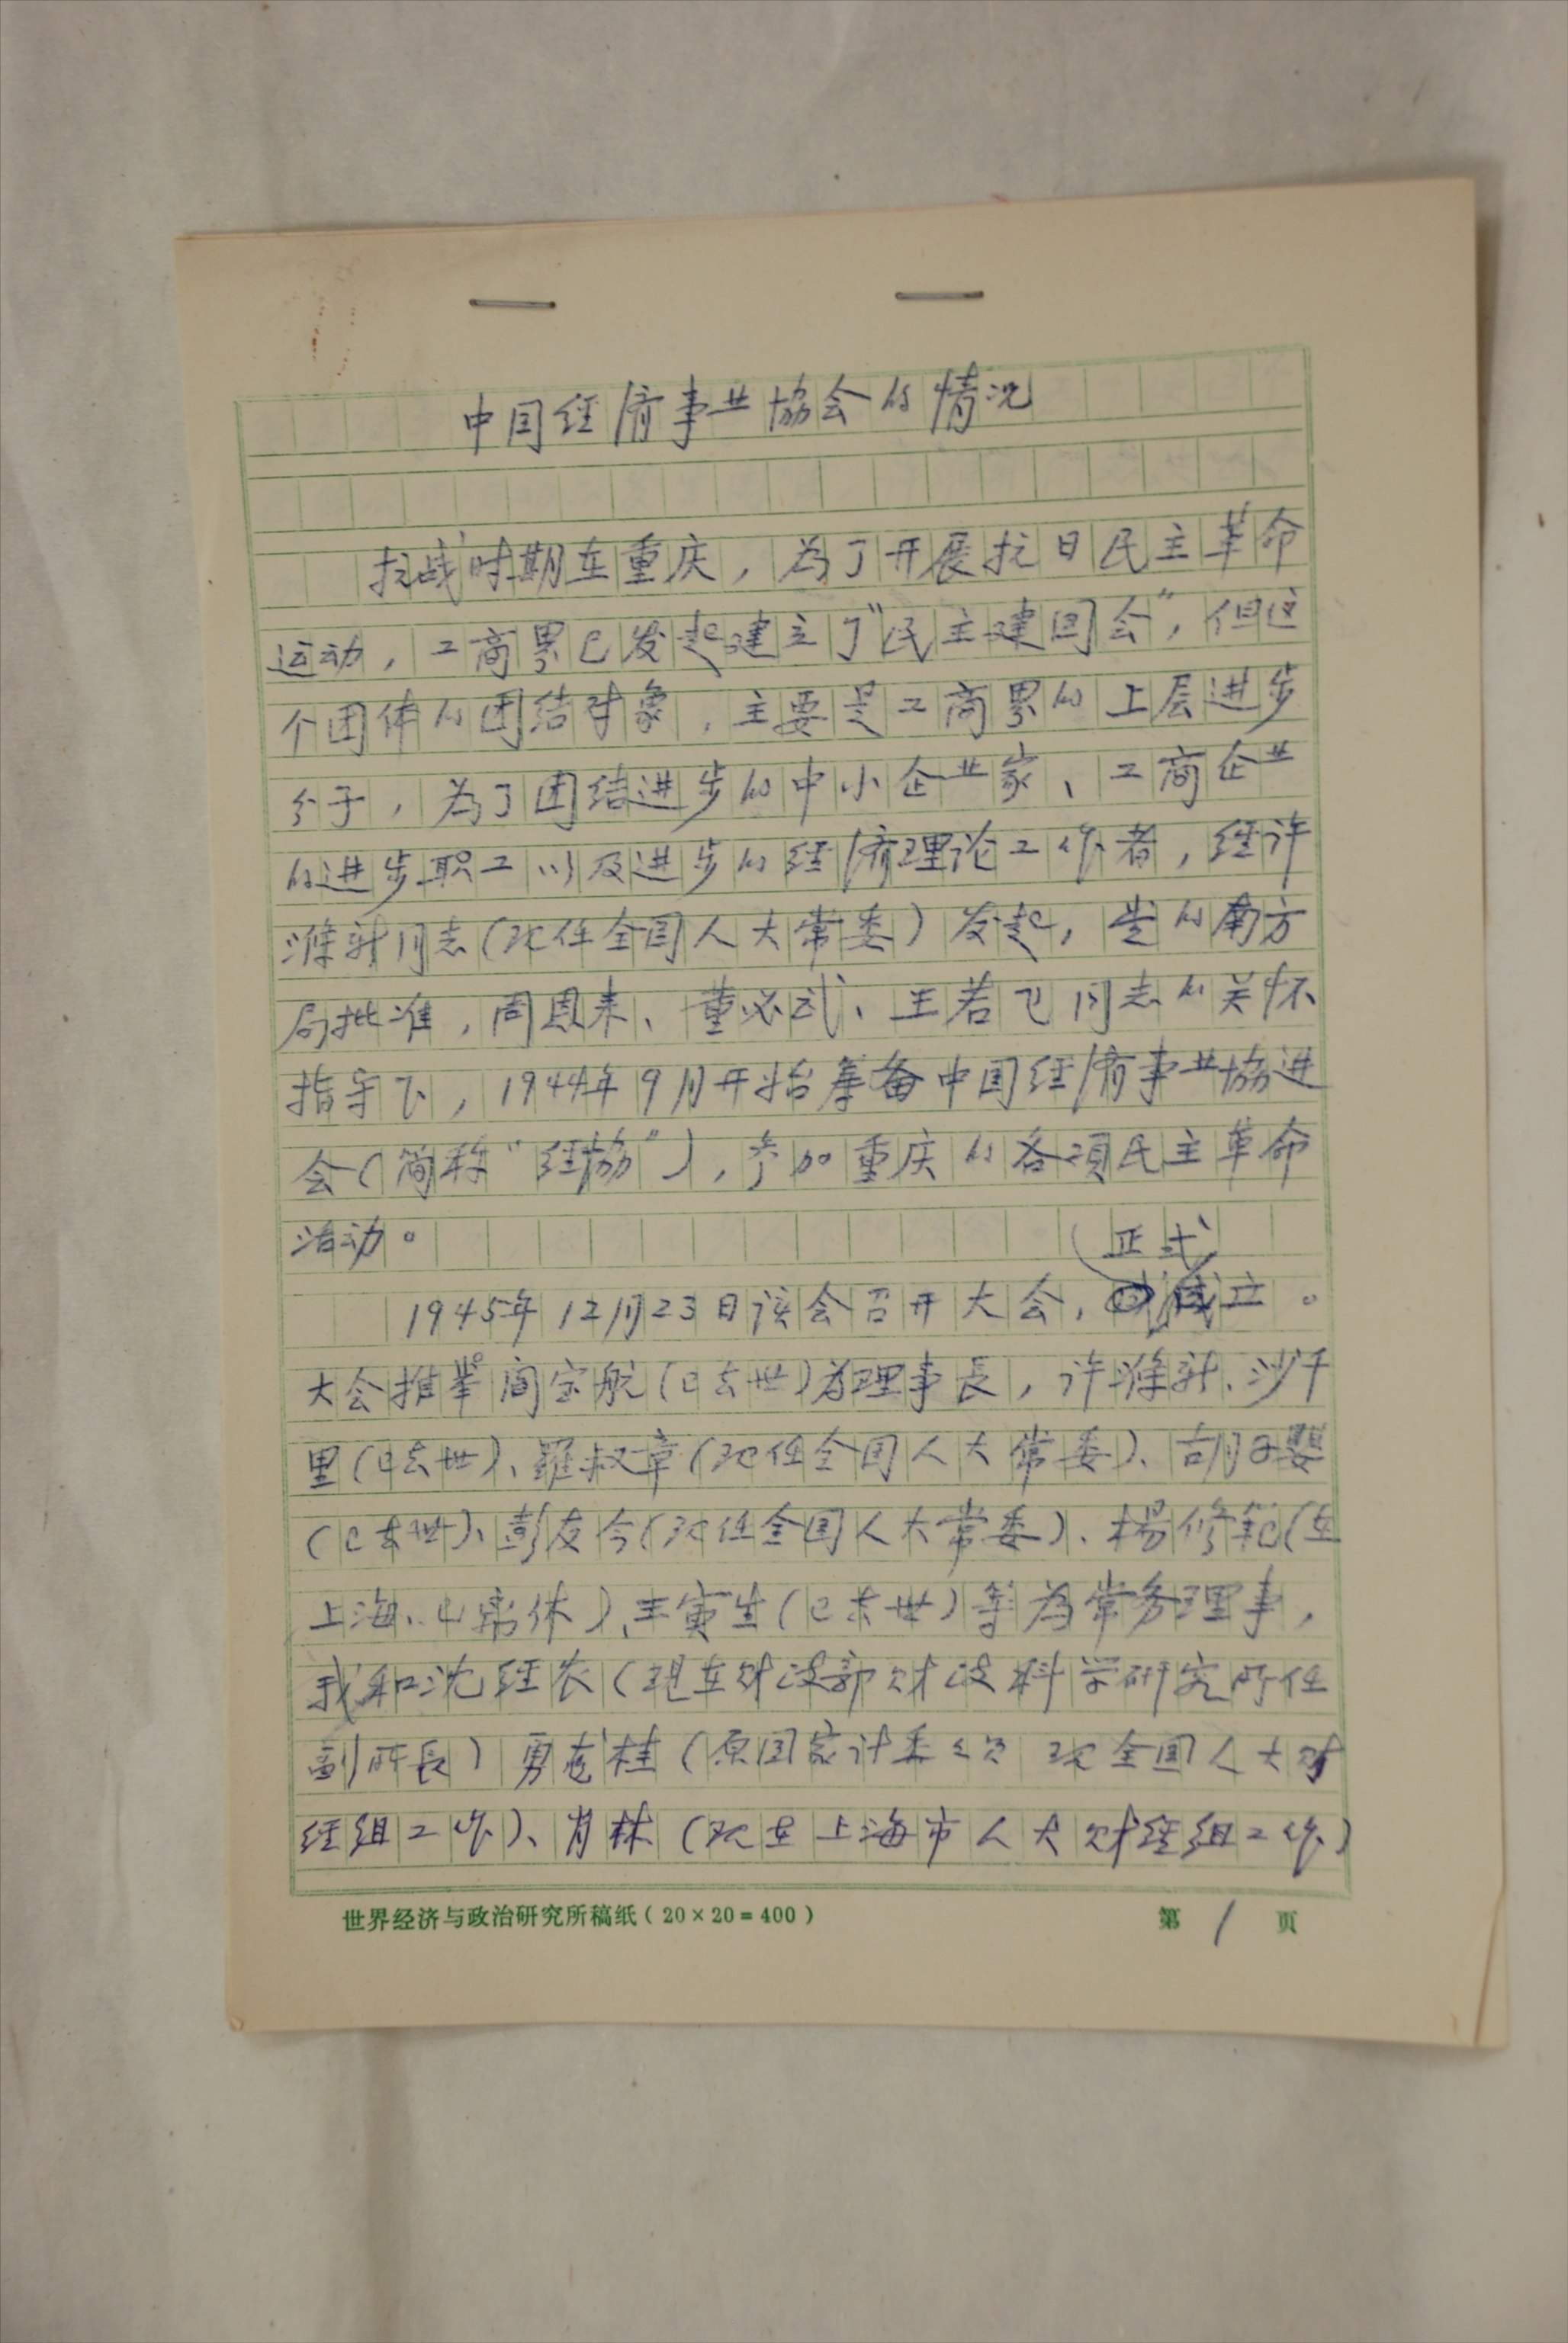 中国经济事业協会的情况
抗战时期在重庆，为了开展抗日民主革命
运动，工商界已发起建立了“民主建国会”，但这
个团体的团结对象，主要是工商界的上层进步
分子，为了团结进步的中小企业家、工商企业
的进步职工以及进步的经济理论工作者，经许
滌新同志（现任全国人大常委）发起，党的南方
局批准，周恩来、董必武、王若飞同志的关怀
指导下，1944年9月开始筹备中国经济事业協进
会（简称“经協”），参加重庆的各项民主革命
活动。
1945年12月23日该会召开大会，正式成立。
大会推举阎宝航（已去世）为理事長，许滌新、沙千
里（已去世）、羅叔章（现任全国人大常委）、胡子婴
（已去世）、彭友今（现任全国人大常委）、楊修範（在
上海、已离休）、王寅生（已去世）等为常务理事，
我和沈经农（现在财政部财政科学研究所任
副所長）勇龙桂（原国家计委 现全国人大财
经组工作）、肖林（现在上海市人大财经组工作）
世界经济与政治研究所稿纸（20×20=400）
第 1 页